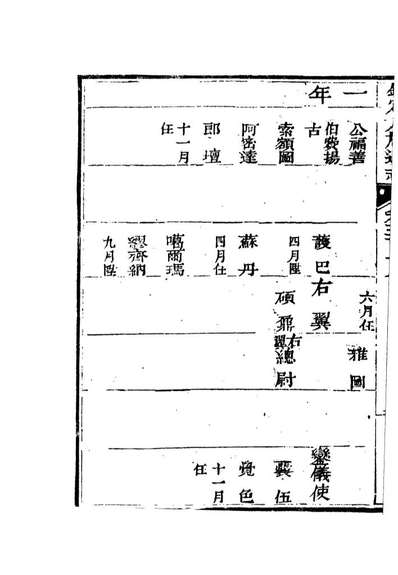 一年
公福善
伯費揚
古
索額圖
阿密達
郎壇
十一月
任
六月任
雅圖
護巴
右翼
四月陞
碩鼐
右翼總尉
蘇丹
四月任
噶爾瑪
齊納
九月陞
鑾儀使
伍
覺色
十一月
任